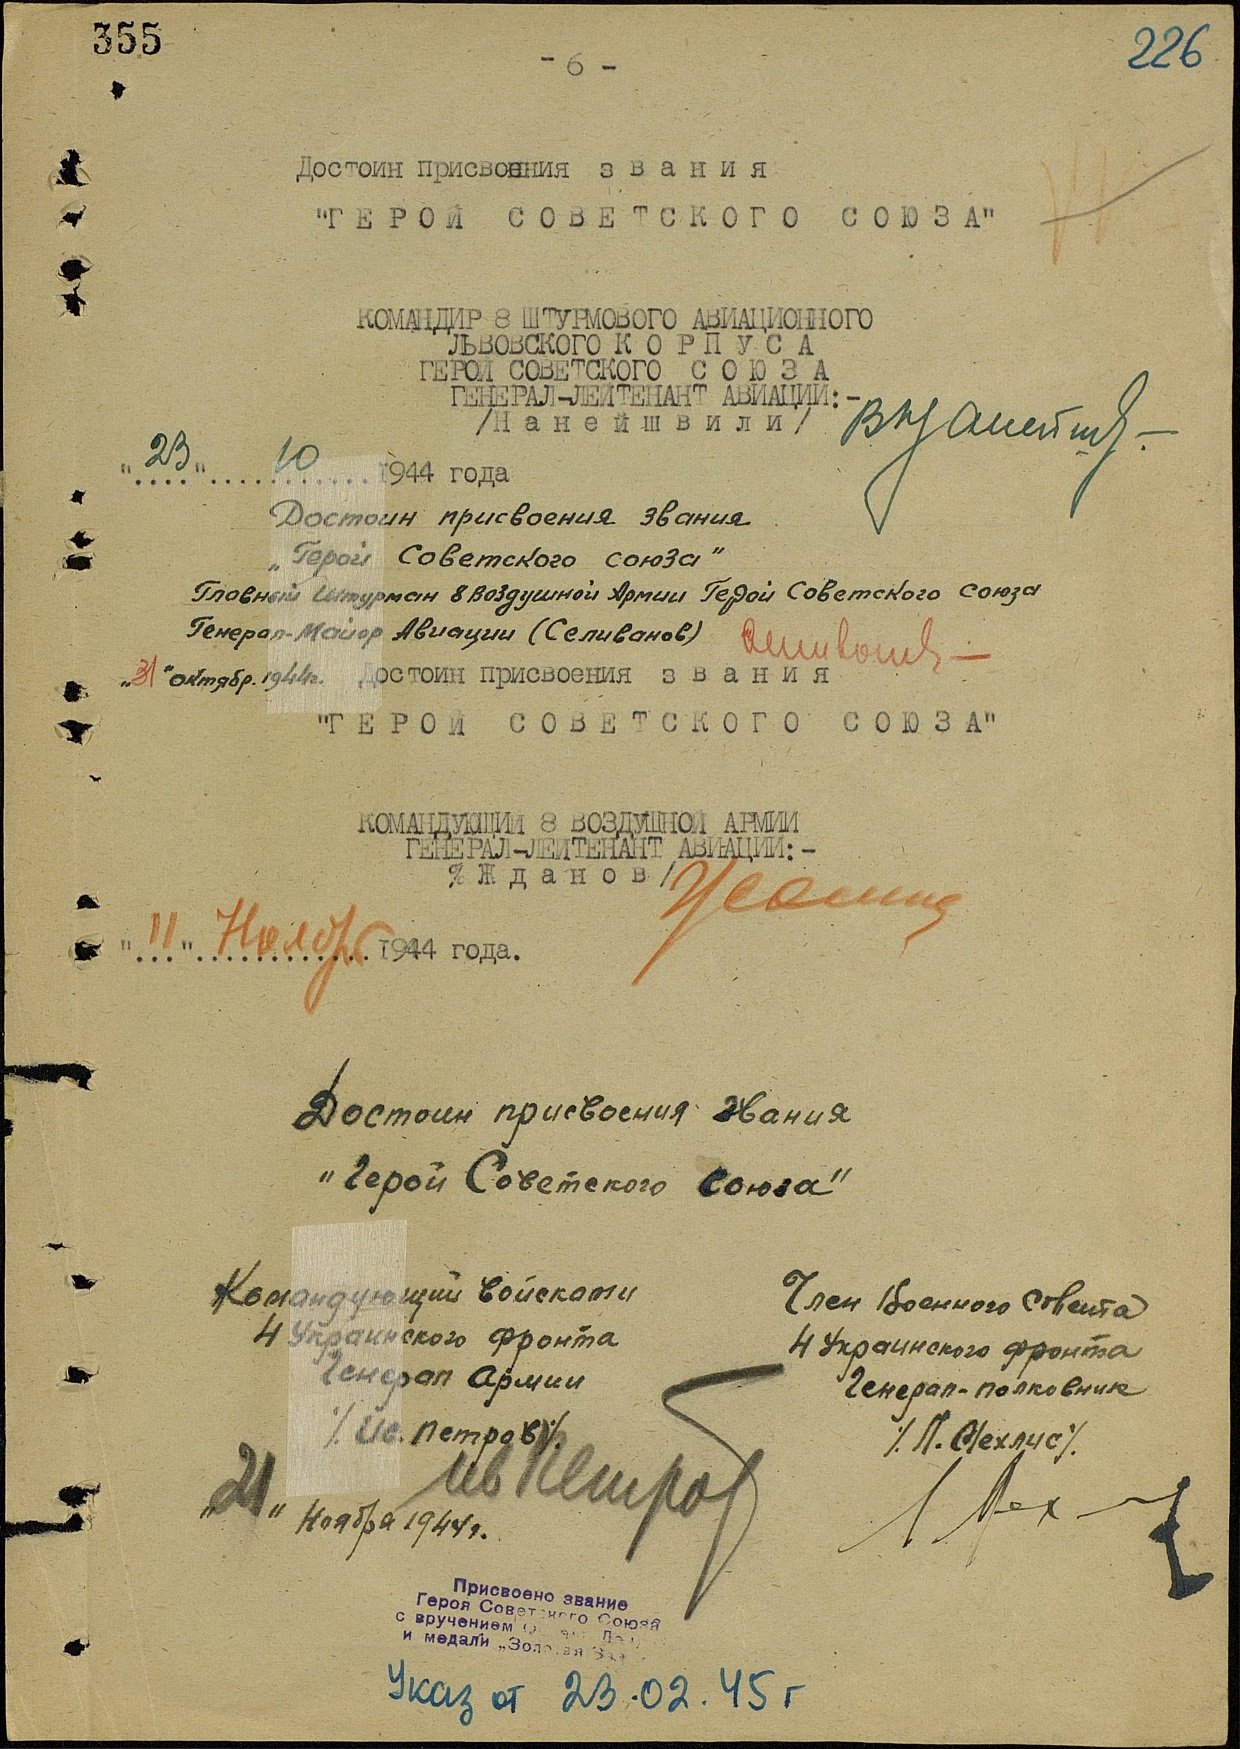 355
226
- 6 -
Достоин присвоения з в а н и я
"Г Е Р О Й С О В Е Т С К О Г О С О Ю З А"
КОМАНДИР 8 ШТУРМОВОГО АВИАЦИОННОГО
ЛЬВОВСКОГО К О Р П У С А
ГЕРОЙ СОВЕТСКОГО С О Ю З А
ГЕНЕРАЛ-ЛЕЙТЕНАНТ АВИАЦИИ:-
/Н а н е й ш в и л и/
"23" 10 1944 года
Достоин присвоения звания
„Герой Советского союза"
Главный Штурман 8 Воздушной Армии Герой Советского союза
Генерал-Майор Авиации (Селиванов)
„31" октябр. 1944г. Достоин присвоения з в а н и я
"Г Е Р О Й С О В Е Т С К О Г О С О Ю З А"
КОМАНДУЮЩИЙ 8 ВОЗДУШНОЙ АРМИИ
ГЕНЕРАЛ-ЛЕЙТЕНАНТ АВИАЦИИ:-
/Ж д а н о в/
"11" Ноябрь 1944 года.
Достоин присвоения звания
"Герой Советского союза"
Командующий войсками
4 Украинского фронта
Генерал Армии
/. Ив. Петров/.
Ив Петров
„21" Ноября 1944г.
Член Военного Совета
4 Украинского фронта
Генерал-полковник
/. Л. Мехлис/.
Присвоено звание
Героя Советского Союза
с вручением
и медали „Золотая
Указ от 23.02.45 г